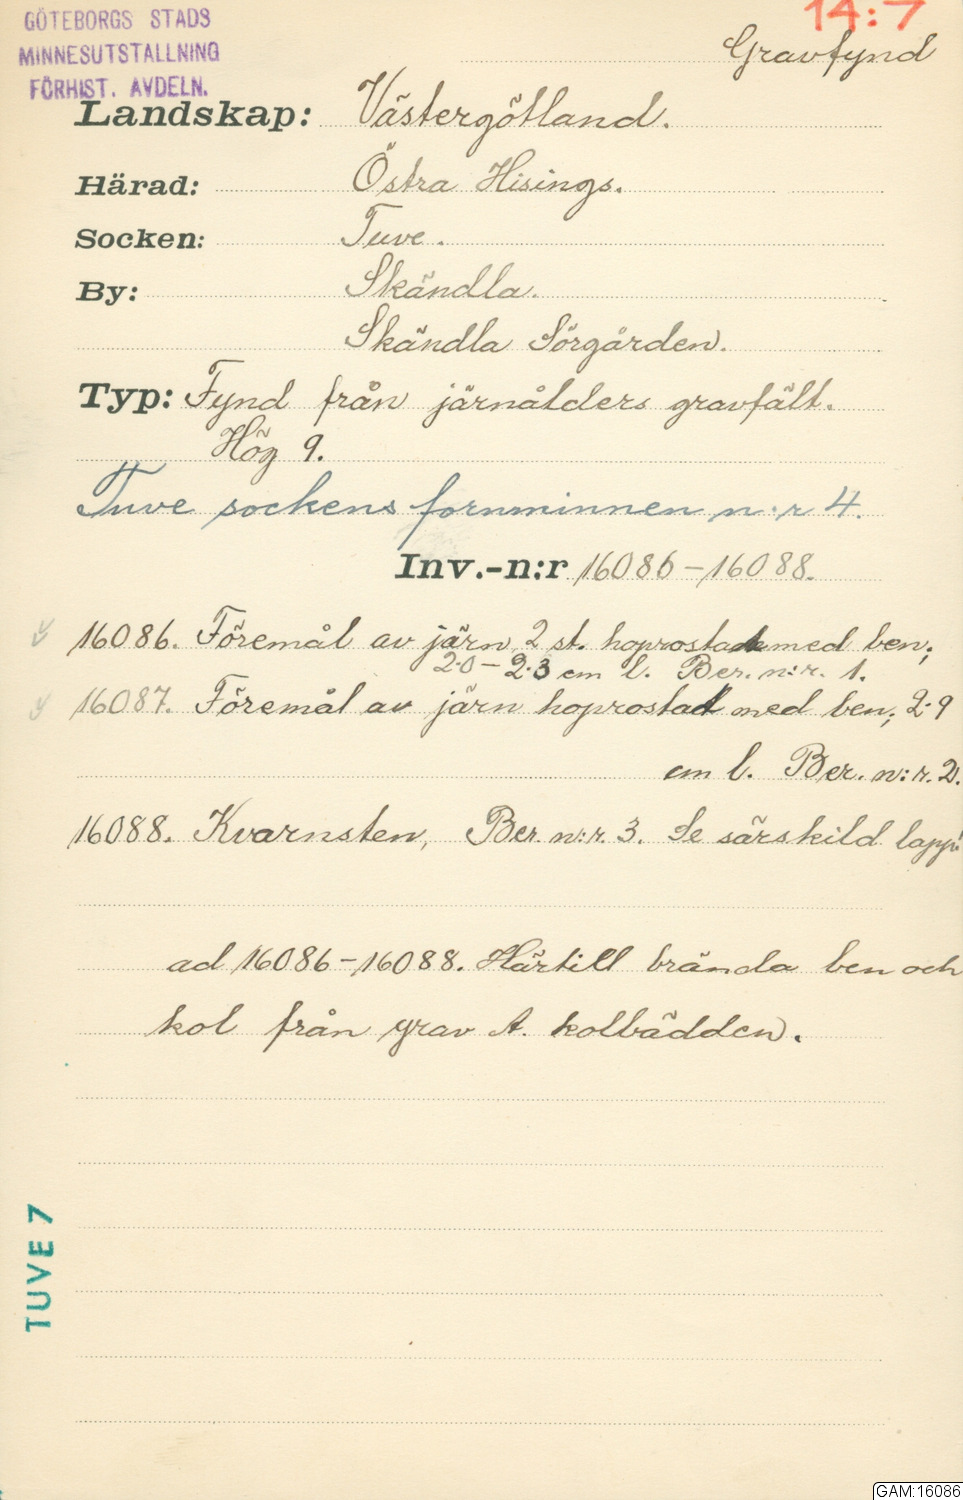 GÖTEBORGS STADS
MINNESUTSTÄLLNING
FÖRHIST. AVDELN.
14:7
Gravfynd
Landskap: Västergötland.
Härad: Östra Hisings.
Socken: Tuve.
By: Skändla.
Skändla Sörgården.
Typ: Fynd från järnålders gravfält.
Hög 9.
Tuve sockens fornminnen n:r 4.
Inv.-n:r 16086-16088.
16086. Föremål av järn, 2 st. hoprostade med ben;
2.0-2.3 cm l. Ber. n:r. 1.
16087. Föremål av järn hoprostat med ben; 2.9
cm l. Ber. n:r. 2.
16088. Kvarnsten, Ber. n:r. 3. Se särskild lapp!
ad 16086-16088. Härtill brända ben och
kol från grav A. kolbädden.
TUVE 7
GAM:16086